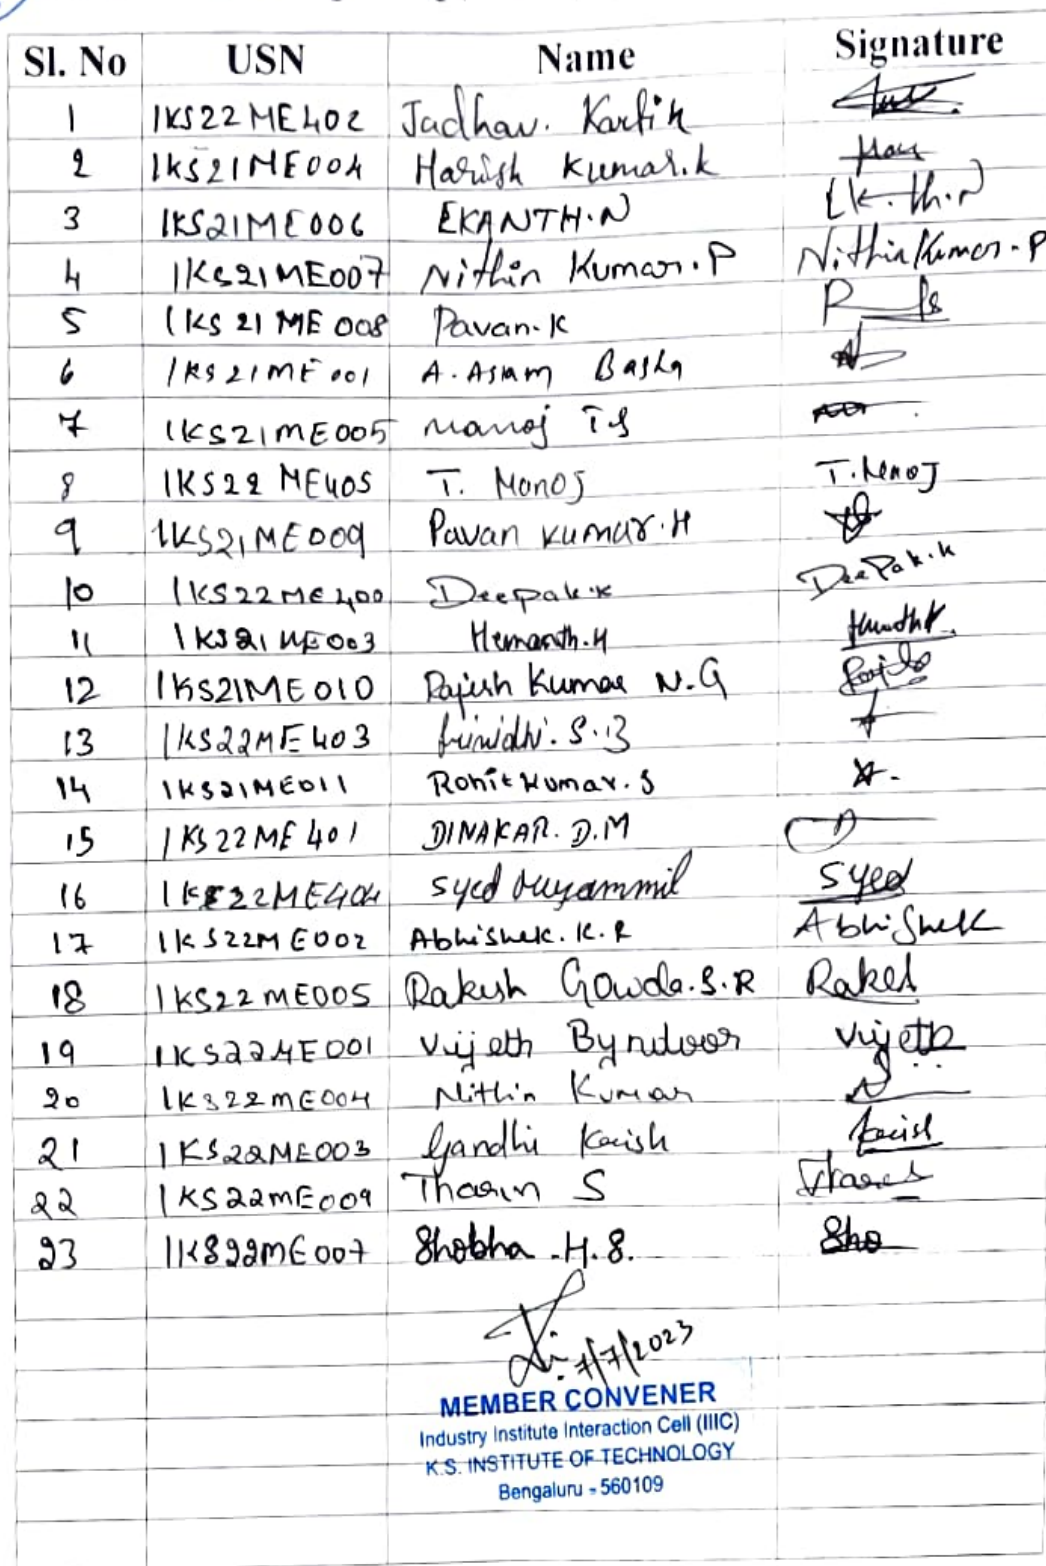 Sl. No USN Name Signature
1 1KS22ME402 Jadhav. Kartik
2 1KS21ME004 Harish Kumar.k
3 1KS21ME006 EKANTH.N
4 1KS21ME007 Nithin Kumar.P Nithin Kumar.P
5 1KS21ME008 Pavan.K
6 1KS21ME001 A. Aslam Basha
7 1KS21ME005 Manoj T S
8 1KS22ME405 T. Manoj T. Manoj
9 1KS21ME009 Pavan Kumar.H
10 1KS22ME400 Deepak.K Deepak.K
11 1KS21ME003 Hemanth.H
12 1KS21ME010 Rajesh Kumar N.G
13 1KS22ME403 Srinidhi. S.B
14 1KS21ME011 Rohit Kumar. S
15 1KS22ME401 DINAKAR. D.M
16 1KS22ME404 Syed Muyammil Syed
17 1KS22ME002 Abhishek. K.R Abhishek
18 1KS22ME005 Rakesh Gowda.S.R
19 1KS22ME001 Vijeth Byndoor Vijeth
20 1KS22ME004 Nithin Kumar
21 1KS22ME003 Gandhi
22 1KS22ME009 S
23 1KS22ME007 Shobha .H.S. Sho
7/7/2023
MEMBER CONVENER
Industry Institute Interaction Cell (IIIC)
K.S. INSTITUTE OF TECHNOLOGY
Bengaluru - 560109